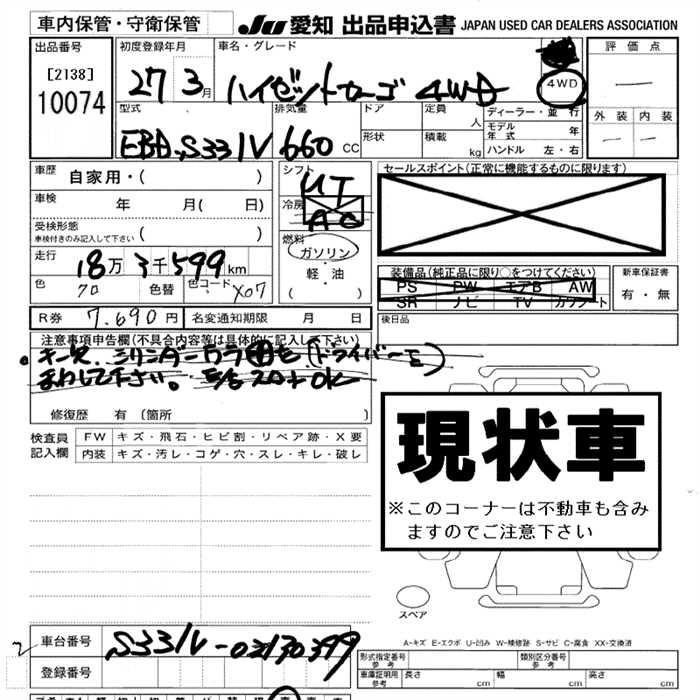 車内保管・守衛保管
JU 愛知 出品申込書 JAPAN USED CAR DEALERS ASSOCIATION
出品番号 初度登録年月 車名・グレード 評価点
[2138]
10074
27 3月 ハイゼットカーゴ 4WD 4WD
外装 内装
型式 排気量 ドア 定員 人 ディーラー・並行
EBD-S331V 660 cc
形状 積載 kg モデル年式 年
ハンドル 左・右
車歴 自家用・( )
シフト MT
セールスポイント(正常に機能するものに限ります)
車検 年 月( 日)
冷房 AC
受検形態 ( )
車検付きのみ記入して下さい
燃料 ガソリン
・
軽・油
( )
走行 18万3千599km
装備品(純正品に限り○をつけてください) 新車保証書
PS PW エアB AW
SR ナビ TV カワシート
有・無
色 クロ 色替 色コード X07
R券 7.690円 名変通知期限 月 日
後日品
注意事項申告欄(不具合内容等は具体的に記入して下さい)
(ドライバー
まわして下さい。 OK
修復歴 有(箇所 )
現状車
※このコーナーは不動車も含み
ますのでご注意下さい
検査員 FW キズ・飛石・ヒビ割・リペア跡・X要
記入欄 内装 キズ・汚レ・コゲ・穴・スレ・キレ・破レ
スペア
A-キズ E-エクボ U-凹み W-補修跡 S-サビ C-腐食 XX-交換済
2
車台番号 S331V-02130399
形式指定番号 参考 類別区分番号 参考
登録番号
車庫証明用 参考 長さ cm 幅 cm 高さ cm